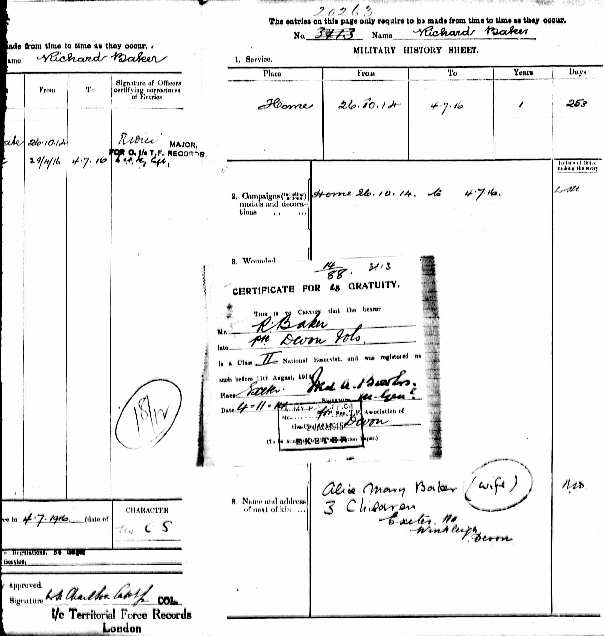 20263
The entries on this page only require to be made from time to time as they occur.
No. 3413 Name Richard Baker
MILITARY HISTORY SHEET.
1. Service.
Place From To Years Days
Home 26.10.14 4.7.16 1 253
2. Campaigns Home 26.10.14. to 4.7.16.
medals and decora-
tions
3. Wounded
14/88. 3413
CERTIFICATE FOR GRATUITY.
This is to Certify that the bearer
Mr. R Baker
late Pte Devon Vols.
is a Class II National Reservist, and was registered as
such before 11th August, 191
Place Exeter.
Signature
Date 4-11-14
Association of
Devon
EXETER
8. Name and address
of next of kin
Alice Mary Baker (wife)
3 Children
Exeter Rd
Winkleigh
Devon
made from time to time as they occur.
ame Richard Baker
From To Signature of Officers
certifying correctness
of Entries
26.10.14
MAJOR,
FOR O. i/c T.F. RECORDS
4.7.16
18/12
ce in 4.7.1916 (date of
CHARACTER
Regulations.
approved.
Signature COL.
I/c Territorial Force Records
London